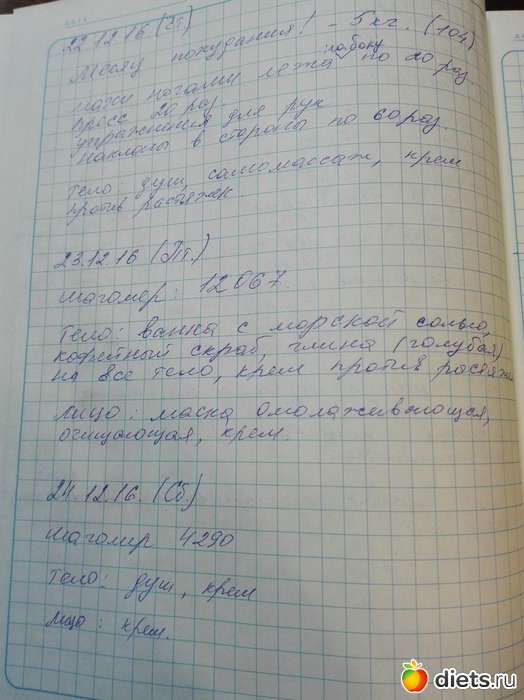 22.12.16 (Чт)
Месяц похудания! - 5 кг. (104)
махи ногами лежа на боку по 20 раз.
пресс 20 раз
упражнения для рук
наклоны в стороны по 60 раз.
тело: душ, самомассаж, крем
против растяжек.
23.12.16 (Пт.)
шагомер: 12067
тело: ванна с морской солью,
кофейный скраб, глина (голубая)
на все тело, крем против растяжек
лицо: маска омолаживающая,
очищающая, крем.
24.12.16. (Сб.)
шагомер 4290
тело: душ, крем
лицо: крем.
diets.ru